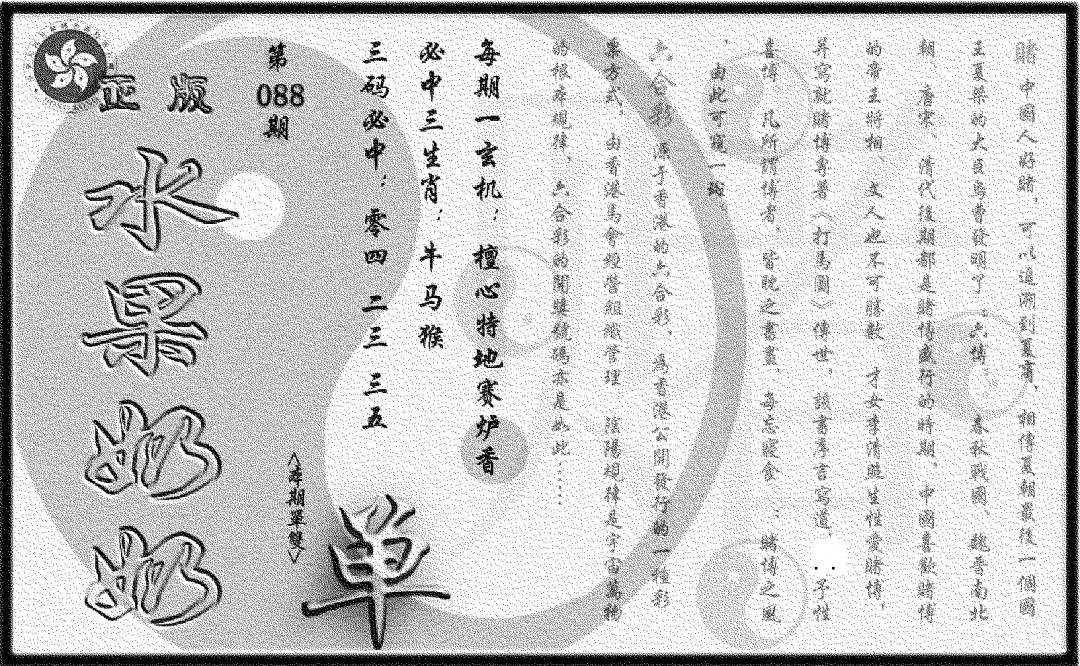 賭 中國人好賭，可以追溯到夏商，相傳夏朝最後一個國
王夏桀的大臣烏曹發明了；六博； 春秋戰國、魏晉南北
朝、唐宋、清代後期都是賭博盛行的時期。中國喜歡賭博
的帝王將相 文人也不可勝數 才女李清照生性愛賭博，
并寫就賭博專著〈打馬圖〉傳世，該書序言寫道：予性
喜博 凡所謂博者，皆耽之晝盡，每忘寢食 ；賭博之風
，由此可窺一斑。
六合彩 源于香港的六合彩，為香港公開發行的一種彩
票方式，由香港馬會經營組織管理 陰陽規律是宇宙萬物
的根本規律，六合彩的開獎號碼亦是如此……
每期一玄机：檀心特地赛炉香
必中三生肖：牛马猴
三码必中：零四 二三 三五
第
088
期
正版
水果奶奶
<本期單雙>
单